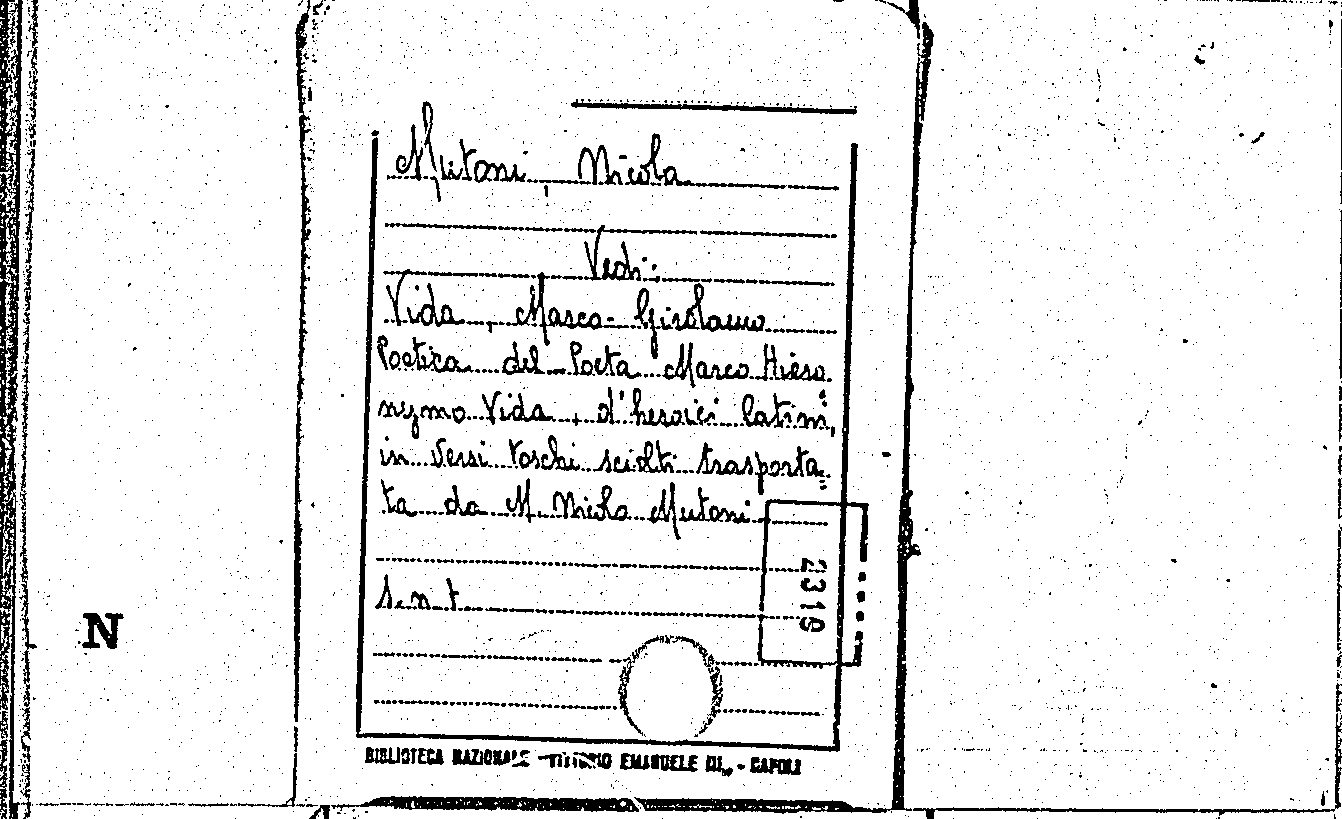 Mutoni, Nicola
Vedi:
Vida, Marco-Girolamo
Poetica del Poeta Marco Hiero
nymo Vida, d'heroici latini,
in versi toschi sciolti trasporta
ta da M. Nicola Mutoni
S.n.t.
2319
N
BIBLIOTECA NAZIONALE - VITTORIO EMANUELE III - NAPOLI